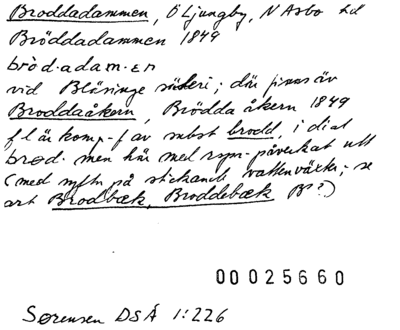 Broddadammen, Ö Ljungby, N Åsbo hd
Bröddadammen 1849
brod.adam.ɛn
vid Bläsinge säteri; där finns äv
Broddaåkern, Brödda åkern 1849
fl är komp-f av subst brodd, i dial
brod. men här med syn- påverkat utt
(med syftn på stickande vattenväxter; se
art Brodbæk, Broddebæk B?)
00025660
Sørensen DSÅ 1:226